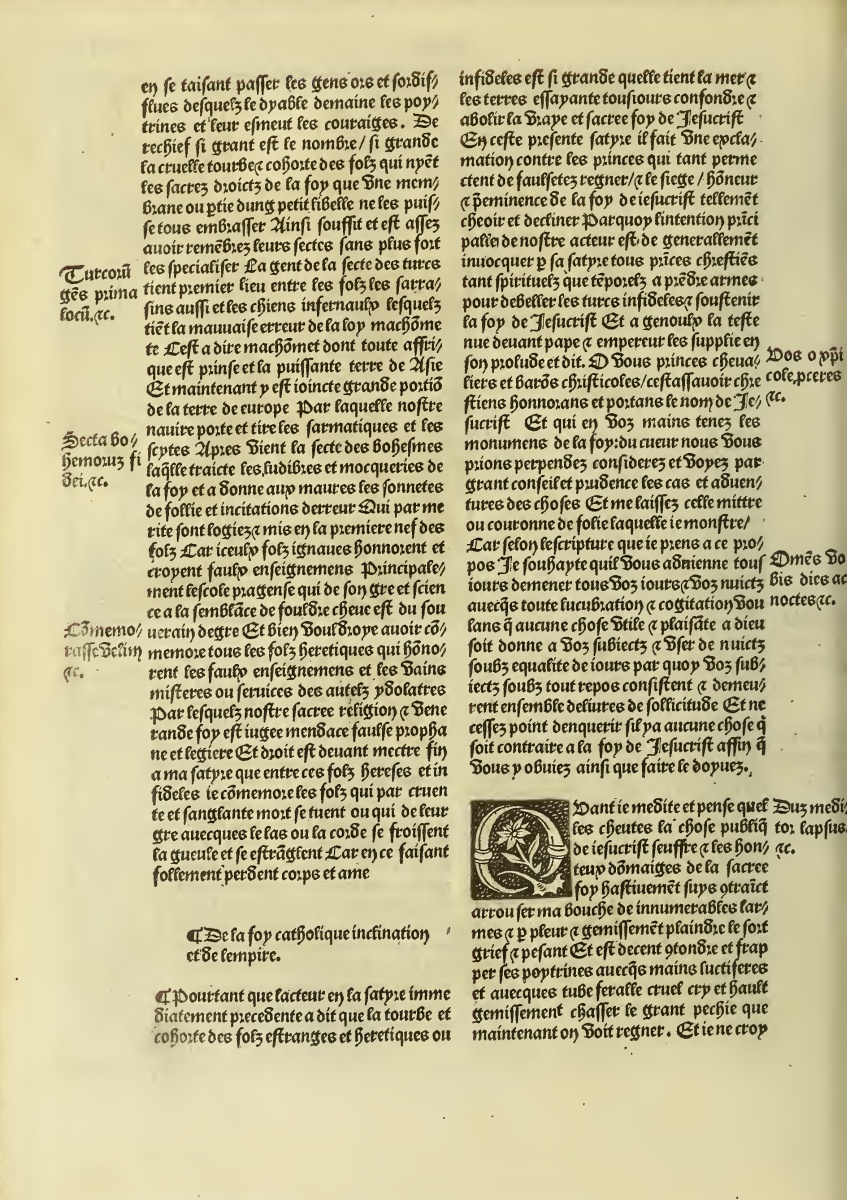 en se taisant passer les gens ors et sordis/
slues desquelz le dyable demaine les poy/
trines et leur esmeut les couraiges. De
rechief si grant est le nombre/ si grande
la cruelle tourbe⁊ cohorte des folz qui nyēt
les sacrez droictz de la foy que vne mem/
brane ou ptie dung petit libelle ne les puis/
se tous embrasser Ainsi souffit et est assez
auoir remēbrez leurs sectes sans plus fort
les specialiser La gent de la secte des turcs
tient premier lieu entre les folz les sarra/
sins aussi et les chiens infernaulx lesquelz
tiēt la mauuaise erreur de la loy machōme
te Cest a dire machōmet dont toute affri/
que est prinse et la puissante terre de Asie
Et maintenant y est ioincte grande portiō
de la terre de europe Par laquelle nostre
nauire porte et tire les sarmatiques et les
scytes Apres vient la secte des bohesmes
laq̄lle traicte les ludibres et mocqueries de
la foy et a donne aux maures les sonnetes
de follie et incitations derreur Qui par me
rite sont logiez⁊ mis en la premiere nef des
folz Car iceulx folz ignaues honnorent et
croyent faulx enseignemens Principale/
ment lescole pragense qui de son gre et scien
ce a la semblāce de fouldre cheue est du sou
uerain degre Et bien vouldroye auoir cō/
memore tous les folz heretiques qui hōno/
rent les faulx enseignemens et les vains
misteres ou seruices des autelz ydolatres
Par lesquelz nostre sacree religion ⁊ vene
rande foy est iugee mendace faulse propha
ne et legiere Et droit est deuant mectre fin
a ma satyre que entre ces folz hereses et in
fideles ie cōmemore les folz qui par cruen
te et sanglante mort se tuent ou qui de leur
gre auecques le las ou la corde se froissent
la gueule et se estrāglent Car en ce faisant
follement perdent corps et ame
¶De la foy catholique inclination
et de lempire.
¶Pourtant que lacteur en la satyre imme
diatement precedente a dit que la tourbe et
cohorte des folz estranges et heretiques ou
Turcorū
gēs prima
locū.⁊c.
Secta bo/
hemorūz fi
dei.⁊c.
Cōmemo/
rasse velim
⁊c.
infideles est si grande quelle tient la mer⁊
les terres essayante tousiours confondre⁊
abolir la vraye et sacree foy de Jesucrist
En ceste presente satyre il fait vne excla/
mation contre les princes qui tant perme
ctent de faulsetez regner/⁊ le siege/ hōneur
⁊ p̄eminence de la foy de iesucrist tellemēt
cheoir et decliner Parquoy lintention prīci
palle de nostre acteur est de generallemēt
inuocquer p sa satyre tous prīces chrestiēs
tant spirituelz que tēporelz a prēdre armes
pour debeller les turcs infideles⁊ soustenir
la foy de Jesucrist Et a genoulx la teste
nue deuant pape ⁊ empereur les supplie en
son prolude et dit. O vous princes cheua/
liers et barōs christicoles/cestassauoir chre
stiens honnorans et portans le nom de Je/
sucrist Et qui en voz mains tenez les
monumens de la foy:du cueur nous vous
prions perpendez considerez et voyez par
grant conseil et prudence les cas et aduen/
tures des choses Et me laissez celle mittre
ou couronne de folie laquelle ie monstre/
Car selon lescripture que ie prens a ce pro/
pos Je souhayte quil vous aduienne tous
iours demener tous voz iours⁊ voz nuictz
auecq̄s toute lucubration ⁊ cogitation vou
lans q̄ aucune chose vtile ⁊ plaisāte a dieu
soit donne a voz subiectz ⁊ vser de nuictz
soubz equalite de iours par quoy voz sub/
iectz soubz tout repos consistent ⁊ demeu/
rent ensemble deliures de sollicitude Et ne
cessez point denquerir sil ya aucune chose q̄
soit contraire a la foy de Jesucrist affin q̄
vous y obuiez ainsi que faire le doyuez.
Quant ie medite et pense quel
les cheutes la chose publiq̄
de iesucrist seuffre ⁊ les hon/
teux dōmaiges de la sacree
foy hastiuemēt suys 9traīct
arrouser ma bouche de innumerables lar/
mes ⁊ p pleur ⁊ gemissemēt plaindre le sort
grief ⁊ pesant Et est decent 9tondre et frap
per ses poytrines auecq̄s mains luctiferes
et auecques tube feralle cruel cry et hault
gemissement chasser le grant pechie que
maintenant on voit regner. Et ie ne croy
Vos o xpi
cole.pceres
⁊c.
Omēs vo
bis dies ac
noctes⁊c.
Duz medi
tor lapsus
⁊c.